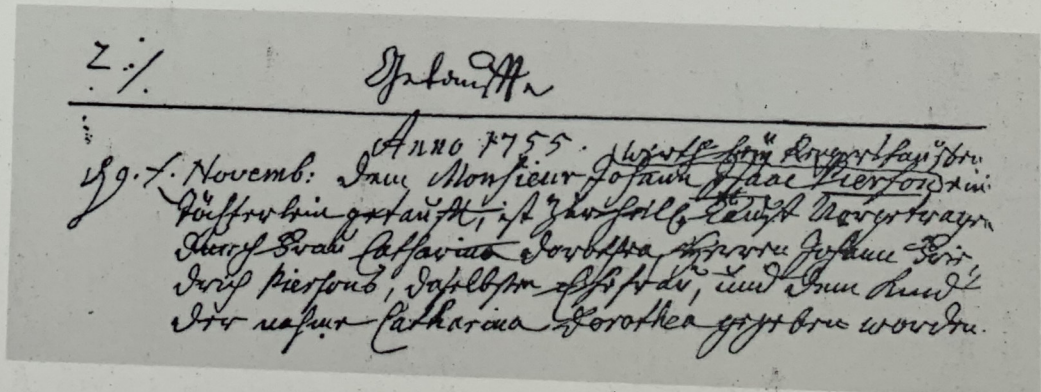 2 ./.
Getauffte
Anno 1755.
Wirth beÿ Repperthausßen
d 9. t. Novemb: dem Monsieur Johann Isaac Pierson ein
Töchterlein getaufft, ist zur heill. Tauff Vorgetragen
durch Frau Catharina Dorothea, Herren Johann Frie,
drich Piersons, daselbsten Ehefrau, und dem Kind
der nahme Catharina Dorothea gegeben worden.